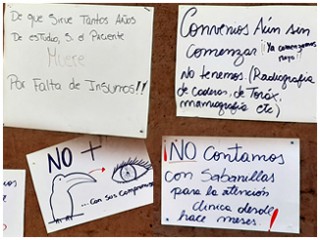 De que Sirve Tantos Años
De estudio, Si el Paciente
Muere
Por Falta de Insumos!!
Convenios Aún sin
Comenzar
¡¡Ya comenzamos
mayo!!
no tenemos. (Radiografía
de Caderas, de Torax,
mamografía etc)
NO +
... Con sus Compromisos
¡NO Contamos
con Sabanillas
para la atención
clínica desde
hace meses.!